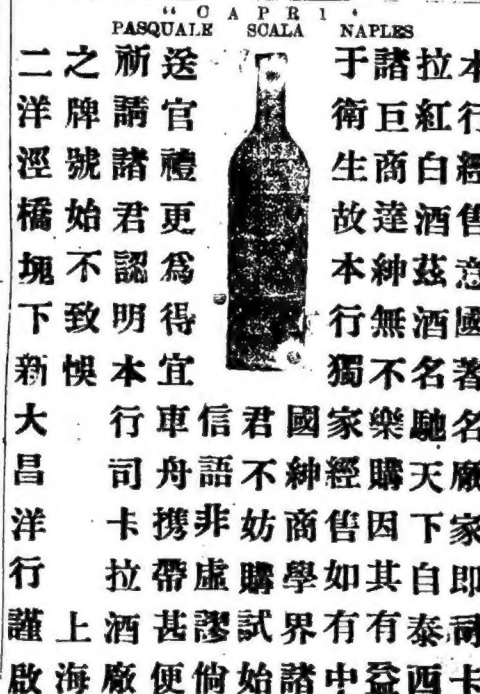 "CAPRI"
PASQUALE SCALA NAPLES
本行經售意國著名廠家即司卡
拉紅白酒茲酒名馳天下自泰西
諸巨商達紳無不樂購因其有益
于衛生故本行獨家經售如有中
國紳商學界諸
君不妨購試始
信語非虛謬倘
送官禮更爲得宜車舟携帶甚便
祈請諸君認明本行司卡拉酒廠
之牌號始不致悞 上海
二洋涇橋塊下新大昌洋行謹啟